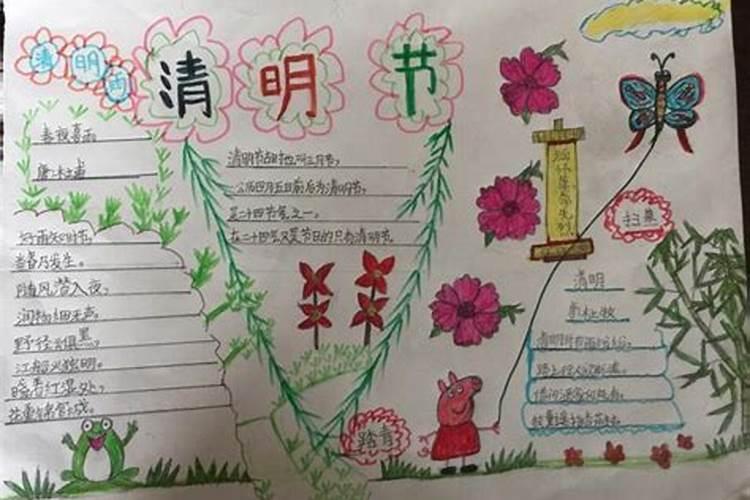 清明雨
清明节
春夜喜雨
唐 杜甫
好雨知时节,
当春乃发生。
随风潜入夜,
润物细无声。
野径云俱黑,
江船火独明。
晓看红湿处,
花重锦官城。
清明节古时也叫三月节,
公历四月五日前后为清明节,
是二十四节气之一。
在二十四气又是节日的只有清明节
缅怀革命先烈
扫墓
踏青
清明
唐 杜牧
清明时节雨纷纷,
路上行人欲断魂。
借问酒家何处有,
牧童遥指杏花村。